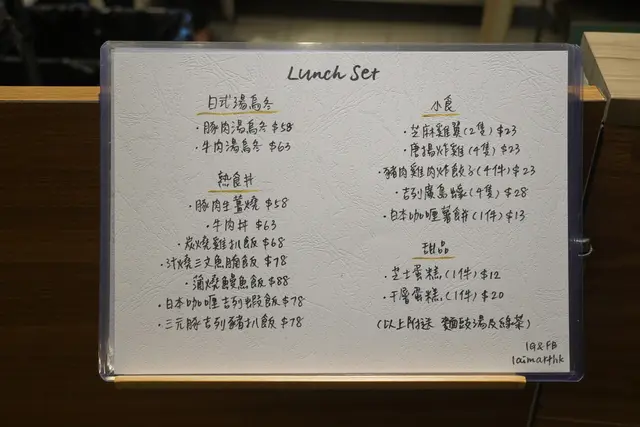 Lunch Set
日式湯烏冬
・豚肉湯烏冬 $58
・牛肉湯烏冬 $63
熱食丼
・豚肉生薑燒 $58
・牛肉丼 $63
・炭燒雞扒飯 $68
・汁燒三文魚腩飯 $78
・蒲燒鰻魚飯 $88
・日本咖喱吉列蝦飯 $78
・三元豚吉列豬扒飯 $78
小食
・芝麻雞翼(2隻) $23
・唐揚炸雞(4隻) $23
・豬肉雞肉炸餃子(4件) $23
・吉列廣島蠔(4隻) $28
・日本咖喱薯餅(1件) $13
甜品
・芝士蛋糕(1件) $12
・千層蛋糕(1件) $20
(以上附送 麵豉湯及絲菜)
IG&FB
laimarthk